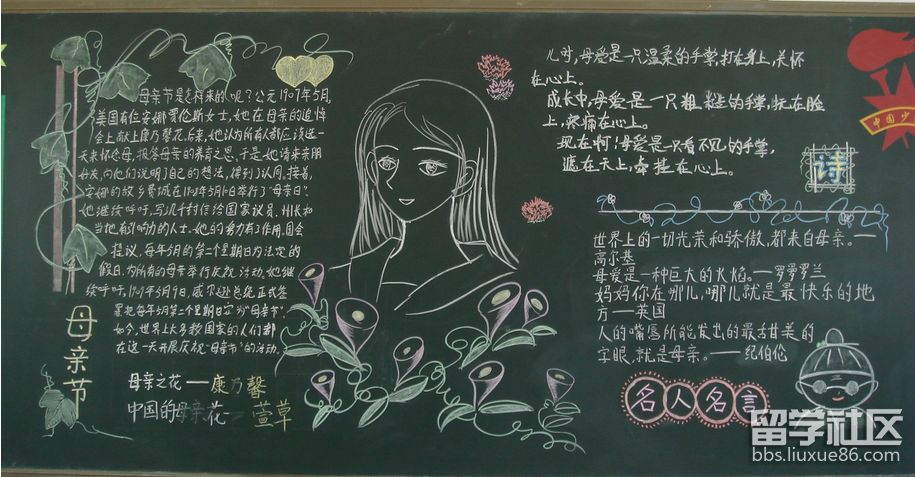 母亲节是怎样来的呢?公元1907年5月,
美国有位安娜贾伦斯女士,她在母亲的追悼
会上献上康乃馨花.后来,她认为所有人都应该选一
天来怀念母,报答母亲的养育之恩,于是她请来亲朋
好友,向他们说明了自己的想法,得到了认同,接着,
安娜的故乡费城在1908年5月10日举行了“母亲日”.
她继续呼吁,写几千封信给国家议员、州长和
当地有影响力的人士,她的努力有了作用,国会
提议,每年5月的第二个星期日为法定的
假日,为所有的母亲举行庆祝活动.她继
续呼吁,1914年5月9日,威尔逊总统正式签
署把每年5月第二个星期日定为“母亲节”.
如今,世界上大多数国家的人们都
在这一天开展庆祝“母亲节”的活动.
母亲节
母亲之花——康乃馨
中国的母亲花—萱草
儿时,母爱是一只温柔的手掌,打在身上,关怀
在心上。
成长中,母爱是一只粗糙的手掌,抚在脸
上,疼痛在心上。
现在啊,母爱是一只看不见的手掌,
遮在天上,牵挂在心上。
中国少
诗
世界上的一切光荣和骄傲,都来自母亲。—
高尔基
母爱是一种巨大的火焰。—罗曼罗兰
妈妈你在哪儿,哪儿就是最快乐的地
方—英国
人的嘴唇所能发出的最甜美的
字眼,就是母亲。——纪伯伦
名人名言
留学社区
bbs.liuxue86.com